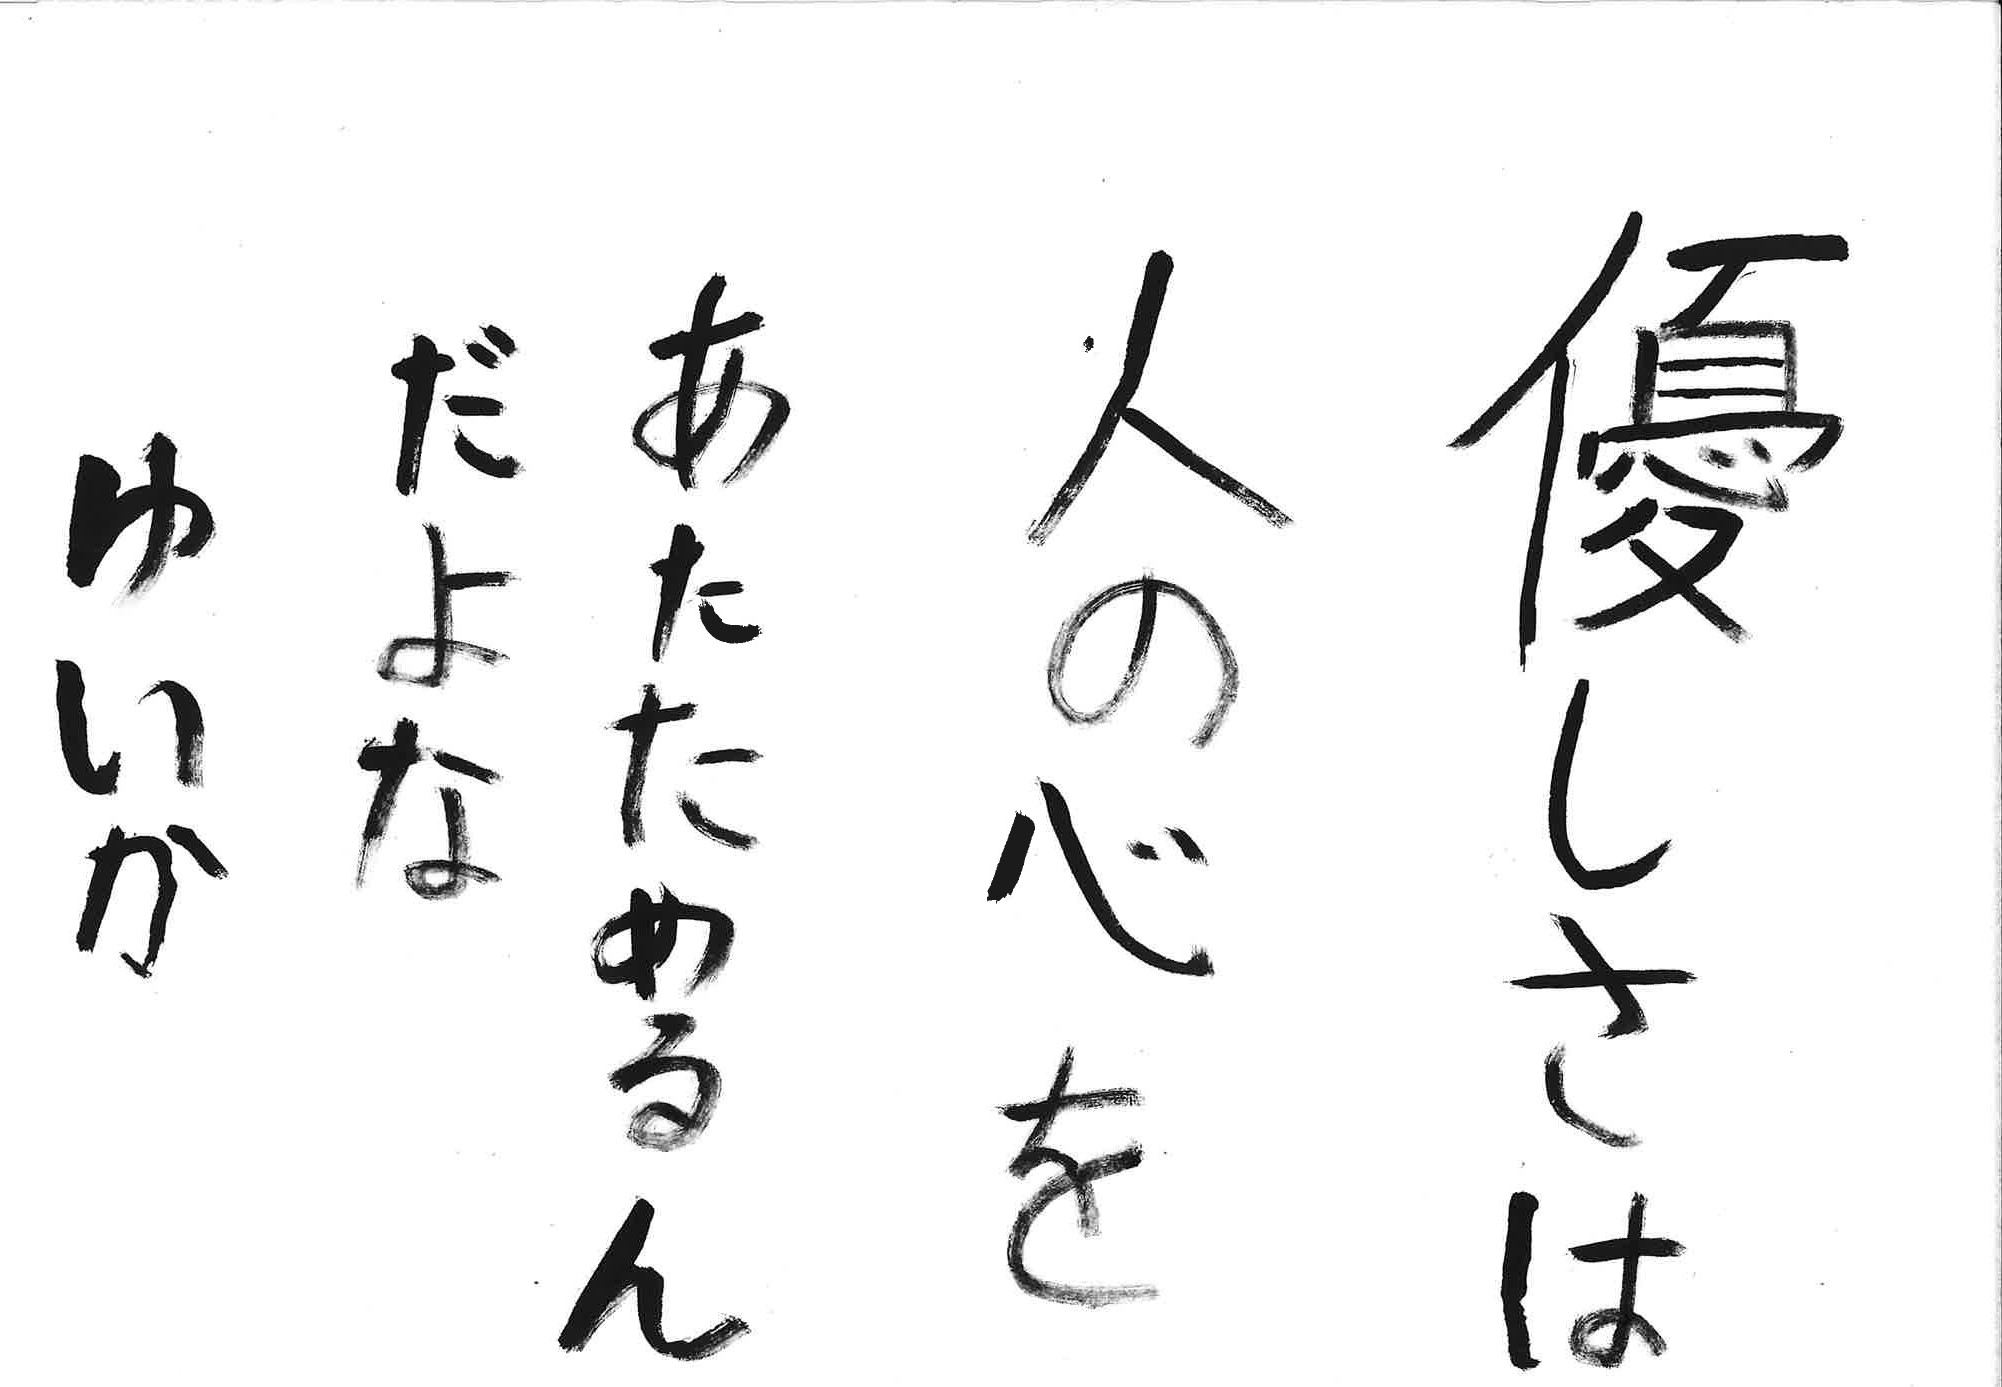 優しさは
人の心を
あたためるん
だよな
ゆいか